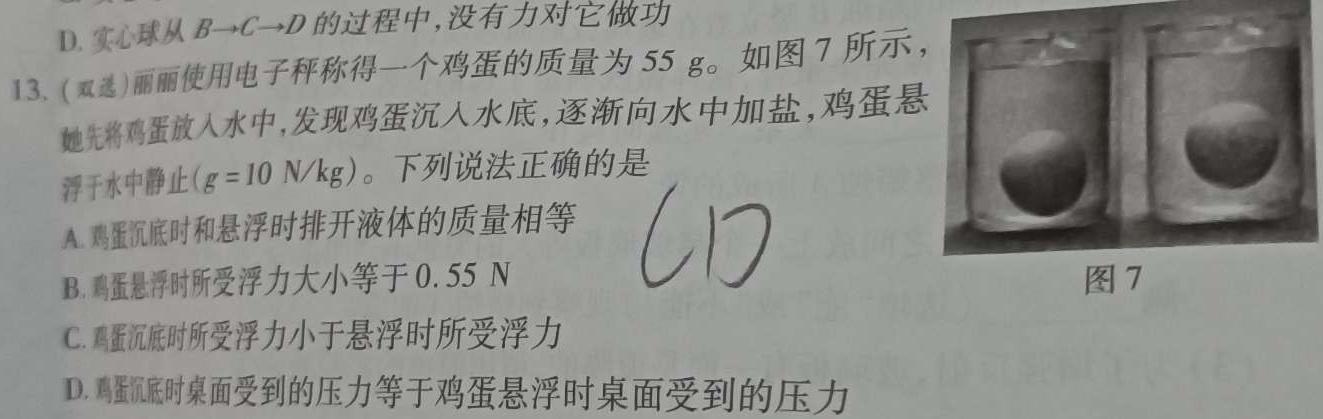 D. 实心球从 B→C→D 的过程中,没有力对它做功
13. (双选)丽丽使用电子秤称得一个鸡蛋的质量为 55 g。如图 7 所示,
她先将鸡蛋放入水中,发现鸡蛋沉入水底,逐渐向水中加盐,鸡蛋悬
浮于水中静止(g=10 N/kg)。下列说法正确的是
A. 鸡蛋沉底时和悬浮时排开液体的质量相等
B. 鸡蛋悬浮时所受浮力大小等于 0.55 N
C. 鸡蛋沉底时所受浮力小于悬浮时所受浮力
D. 鸡蛋沉底时桌面受到的压力等于鸡蛋悬浮时桌面受到的压力
CD
图 7